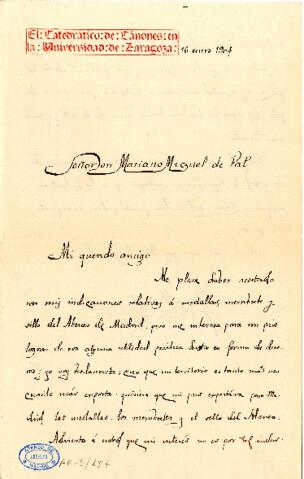 El Catedrático de Cánones en
la Universidad de Zaragoza:
16 enero 1904
Señor Don Mariano Miguel de Val
Mi querido amigo
Me place haber acertado
con mis indicaciones relativas á medallas, membrete y
sello del Ateneo de Madrid, pero me interesa para mi país
lograr de vos alguna utilidad práctica
yo soy que un territorio es tanto más
cuanto más exporta; quisiera que mi país exportára para Ma-
drid las medallas, los membretes y el sello del Ateneo.
Advierto á usted que mi interés no es por
AA-3/257